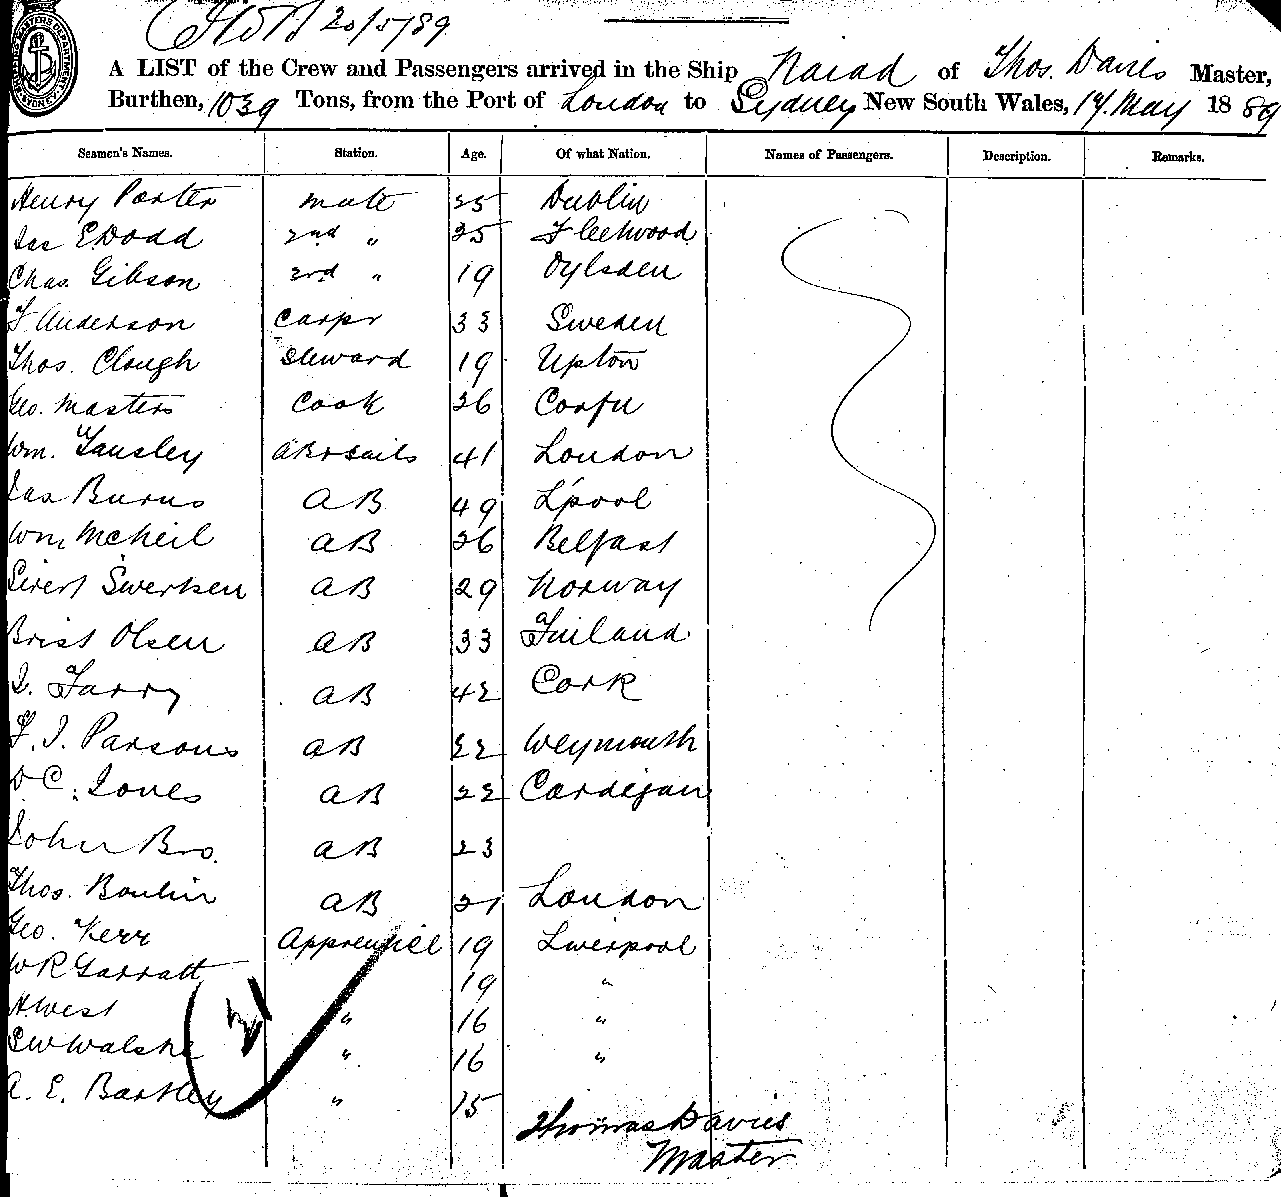 20/5/89
A LIST of the Crew and Passengers arrived in the Ship Naiad of Thos. Davies Master,
Burthen, 1039 Tons, from the Port of London to Sydney New South Wales, 14 May 1889
Seamen's Names. Station. Age. Of what Nation. Names of Passengers. Description. Remarks.
Henry Porter mate 25 Dublin
Jas E Dodd 2nd " 25 Fleetwood
Chas. Gibson 3rd " 19
F Anderson Carpr 33 Sweden
Thos. Clough Steward 19 Upton
Geo. Masters Cook 26 Corfu
Wm. Tansley AB & Sails 41 London
Jas Burns AB 49 L'pool
Wm McNeil AB 26 Belfast
Sivert Swertsen AB 29 Norway
Olsen AB 33 Finland
J. Farry AB 42 Cork
F. J. Parsons AB 22 Weymouth
D C. Jones AB 22 Cardigan
John Bro. AB 23
Thos. AB 21 London
Geo. Kerr Apprentice 19 Liverpool
W R Garratt 19 "
A West " 16 "
" 16 "
A. E. Bartley " 15
21
Thomas Davies
Master